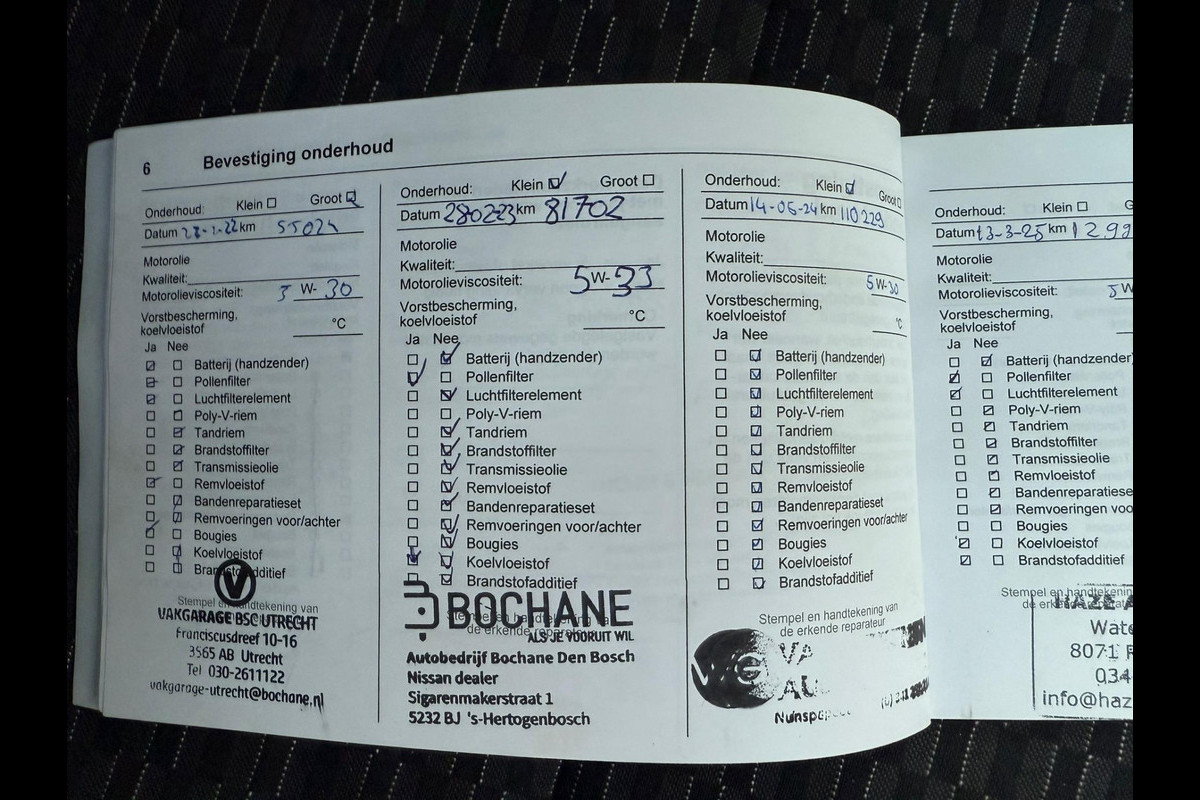 6 Bevestiging onderhoud
Onderhoud: Klein Groot
Datum km 55024
Motorolie
Kwaliteit:
Motorolieviscositeit: 5 W- 30
Vorstbescherming,
koelvloeistof °C
Ja Nee
Batterij (handzender)
Pollenfilter
Luchtfilterelement
Poly-V-riem
Tandriem
Brandstoffilter
Transmissieolie
Remvloeistof
Bandenreparatieset
Remvoeringen voor/achter
Bougies
Koelvloeistof
Brandstofadditief
Stempel en handtekening van
VAKGARAGE BSC UTRECHT
Franciscusdreef 10-16
3565 AB Utrecht
Tel 030-2611122
vakgarage-utrecht@bochane.nl
Onderhoud: Klein Groot
Datum 280223 km 81702
Motorolie
Kwaliteit:
Motorolieviscositeit: 5 W-
Vorstbescherming,
koelvloeistof °C
Ja Nee
Batterij (handzender)
Pollenfilter
Luchtfilterelement
Poly-V-riem
Tandriem
Brandstoffilter
Transmissieolie
Remvloeistof
Bandenreparatieset
Remvoeringen voor/achter
Bougies
Koelvloeistof
Brandstofadditief
Stempel en handtekening van
de erkende reparateur
BOCHANE
ALS JE VOORUIT WIL
Autobedrijf Bochane Den Bosch
Nissan dealer
Sigarenmakerstraat 1
5232 BJ 's-Hertogenbosch
Onderhoud: Klein Groot
Datum 14-06-24 km 110229
Motorolie
Kwaliteit:
Motorolieviscositeit: 5 W-30
Vorstbescherming,
koelvloeistof °C
Ja Nee
Batterij (handzender)
Pollenfilter
Luchtfilterelement
Poly-V-riem
Tandriem
Brandstoffilter
Transmissieolie
Remvloeistof
Bandenreparatieset
Remvoeringen voor/achter
Bougies
Koelvloeistof
Brandstofadditief
Stempel en handtekening van
de erkende reparateur
VA
AU
Onderhoud: Klein G
Datum 13-3-25 km 1299
Motorolie
Kwaliteit:
Motorolieviscositeit: 5 W
Vorstbescherming,
koelvloeistof
Ja Nee
Batterij (handzender
Pollenfilter
Luchtfilterelement
Poly-V-riem
Tandriem
Brandstoffilter
Transmissieolie
Remvloeistof
Bandenreparatiese
Remvoeringen voo
Bougies
Koelvloeistof
Brandstofadditief
Stempel en handteken
de erkende reparat
HAZE
Wate
8071
034
info@haz